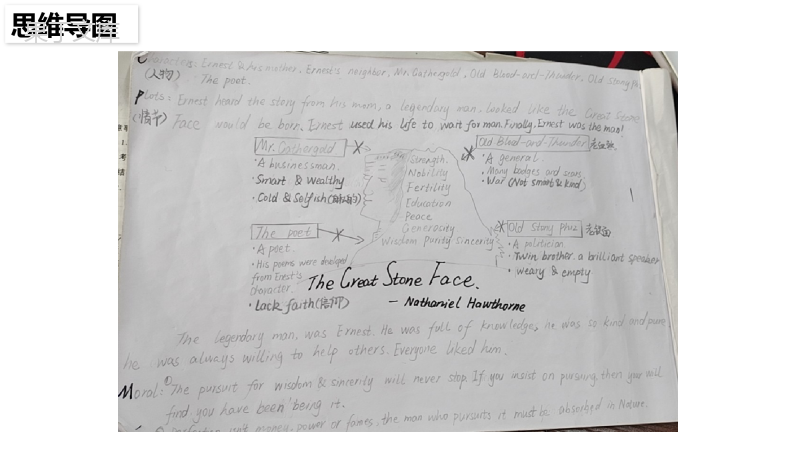 思维导图
Characters: Ernest & his mother, Ernest's neighbor, Mr. Gathergold, Old Blood-and-Thunder, Old Stony
(人物) The poet.
Plots: Ernest heard the story from his mom, a legendary man, looked like the Great Stone
(情节) Face would be born. Ernest used his life to wait for man. Finally, Ernest was the man!
Mr. Gathergold
· A businessman.
· Smart & Wealthy
· Cold & Selfish
Old Blood-and-Thunder
· A general.
· Many badges and scars
· War (Not smart & kind)
Strength
Nobility
Fertility
Education
Peace
Generosity
Wisdom purity sincerity
The poet
· A poet.
· His poems were
from Ernest's
character.
· Lack faith
Old Stony phiz
· A politician
· Twin brother. a brilliant speaker
· weary & empty
The Great Stone Face.
— Nathaniel Hawthorne
The legendary man, was Ernest. He was full of knowledge, he was so kind and
he was always willing to help others. Everyone liked him.
Moral: ① The pursuit for wisdom & sincerity will never stop. If you insist on pursuing, then you will
find you have been being it.
money, power or fames, the man who pursuits it must be absorbed in Nature.